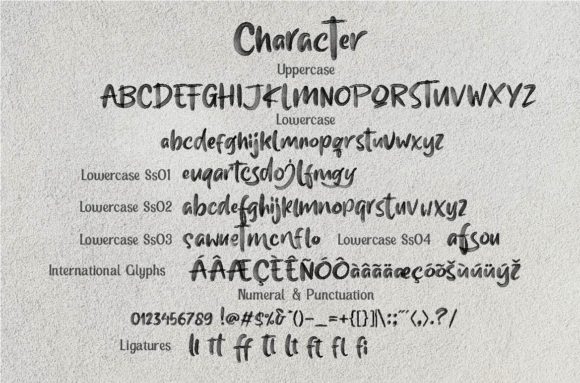 Character
Uppercase
ABCDEFGHIJKLMNOPQRSTUVWXYZ
Lowercase
abcdefghijklmnopqrstuvwxyz
Lowercase Ss01 euqartcsdojlfmgy
Lowercase Ss02 abcdefghijklmnopqrstuvwxyz
Lowercase Ss03 sawuetmcnflo Lowercase Ss04 afsou
International Glyphs ÁÂÆÇÈÊÑÓÔàâãäæçóõšùúüÿž
Numeral & Punctuation
0123456789 !@#$%&*()-_=+{[}]|\:;"'<,>.?/
Ligatures ll tt ff tl lt ft fl fi